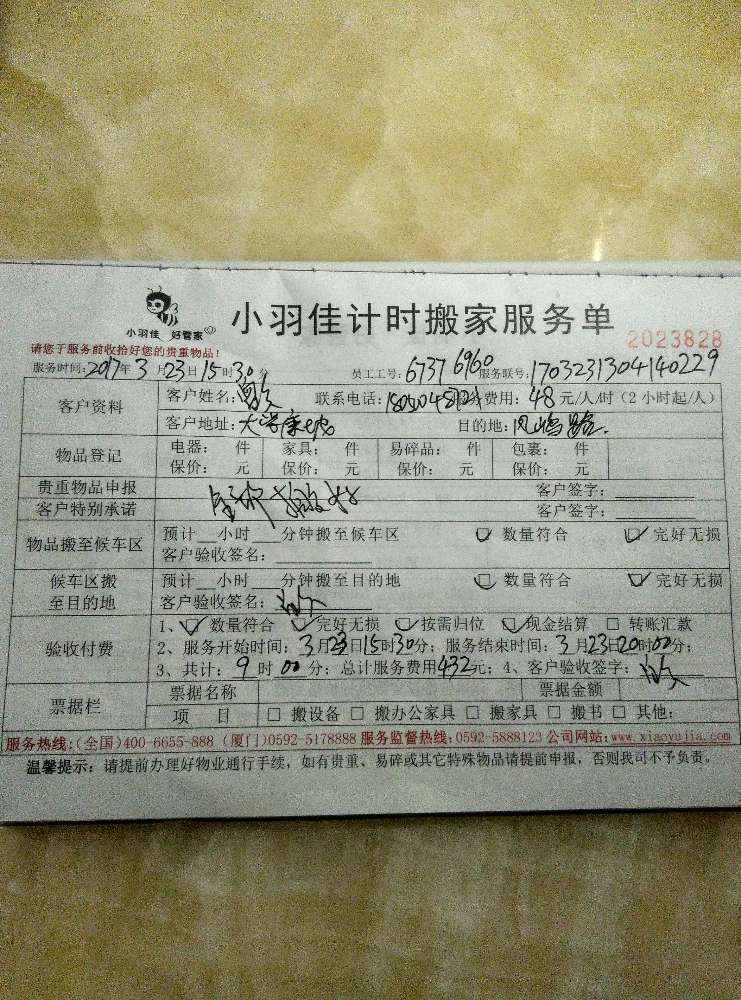 小羽佳 好管家
小羽佳计时搬家服务单
2023828
请您于服务前收拾好您的贵重物品！
服务时间：2017年3月23日15时30分 员工工号：6737 6960 服务联号：1703231304140229
客户资料 客户姓名： 联系电话： 服务费用：48元/人/时（2小时起/人）
客户地址： 目的地：
物品登记 电器： 件 家具： 件 易碎品： 件 包裹： 件
保价： 元 保价： 元 保价： 元 保价： 元
贵重物品申报 客户签字：
客户特别承诺 全部搬好 客户签字：
物品搬至候车区 预计__小时___分钟搬至候车区 ☑ 数量符合 ☑ 完好无损
客户验收签名：
候车区搬至目的地 预计__小时___分钟搬至目的地 ☑ 数量符合 ☑ 完好无损
客户验收签名：
验收付费 1、☑ 数量符合 ☑ 完好无损 ☑ 按需归位 ☑ 现金结算 □ 转账汇款
2、服务开始时间：3月23日15时30分；服务结束时间：3月23日20时00分；
3、共计：9时00分；总计服务费用432元；4、客户验收签字：
票据栏 票据名称 票据金额
项 目 □ 搬设备 □ 搬办公家具 □ 搬家具 □ 搬书 □ 其他：
服务热线：(全国)400-6655-888 (厦门)0592-5178888 服务监督热线：0592-5888123 公司网站：www.xiaoyujia.com
温馨提示：请提前办理好物业通行手续，如有贵重、易碎或其它特殊物品请提前申报，否则我司不予负责。